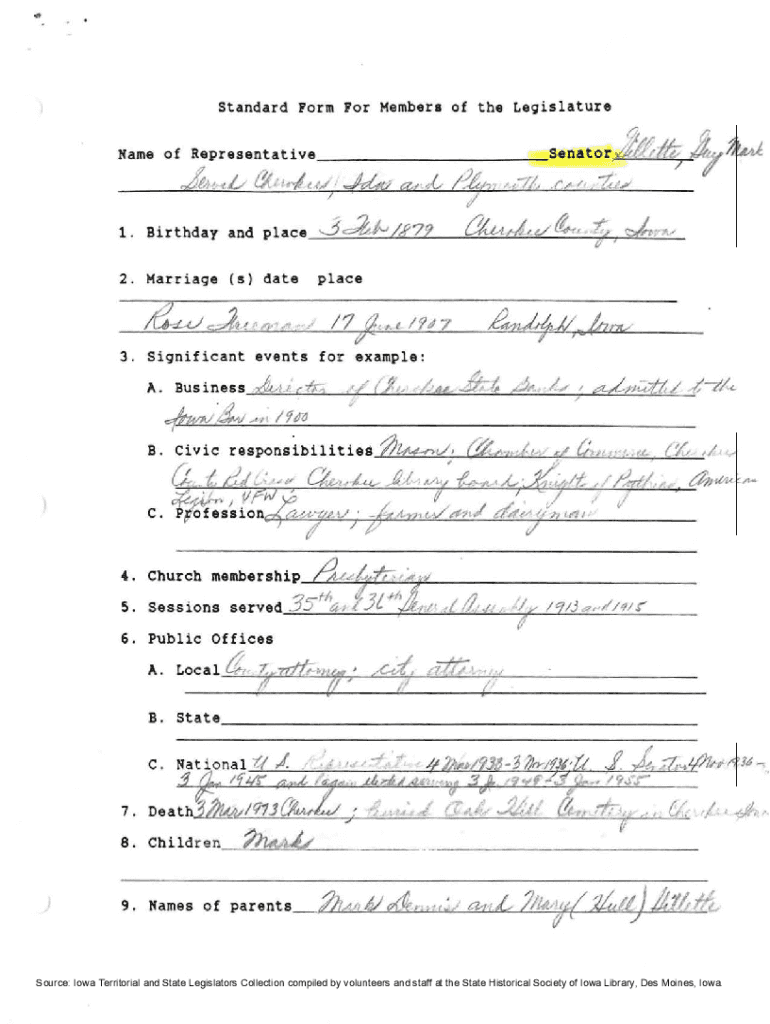 Standard Form For Members of the Legislature
Name of Representative Senator Gillette, Guy Mark
Served Cherokee, Ida and Plymouth counties
1. Birthday and place 3 Feb 1879 Cherokee County, Iowa
2. Marriage (s) date place
Rose Freeman 17 June 1907 Randolph, Iowa
3. Significant events for example:
A. Business Director of Cherokee State Bank; admitted to the
Iowa Bar in 1900
B. Civic responsibilities Mason; Chamber of Commerce, Cherokee
County Red Cross Cherokee library board; Knights of Pythias, American
Legion, VFW
C. Profession Lawyer; farmer and dairyman
4. Church membership Presbyterian
5. Sessions served 35th and 36th General Assembly 1913 and 1915
6. Public Offices
A. Local County attorney; city attorney
B. State
C. National U S. Representative 4 Mar 1933-3 Nov 1936; U. S. Senator 4 Nov 1936-
3 Jan 1945 and again elected serving 3 Ja 1949-3 Jan 1955
7. Death 3 Mar 1973 Cherokee; buried Oak Hill Cemetery in Cherokee Iowa
8. Children Mark
9. Names of parents Mark Dennis and Mary (Hull) Gillette
Source: Iowa Territorial and State Legislators Collection compiled by volunteers and staff at the State Historical Society of Iowa Library, Des Moines, Iowa